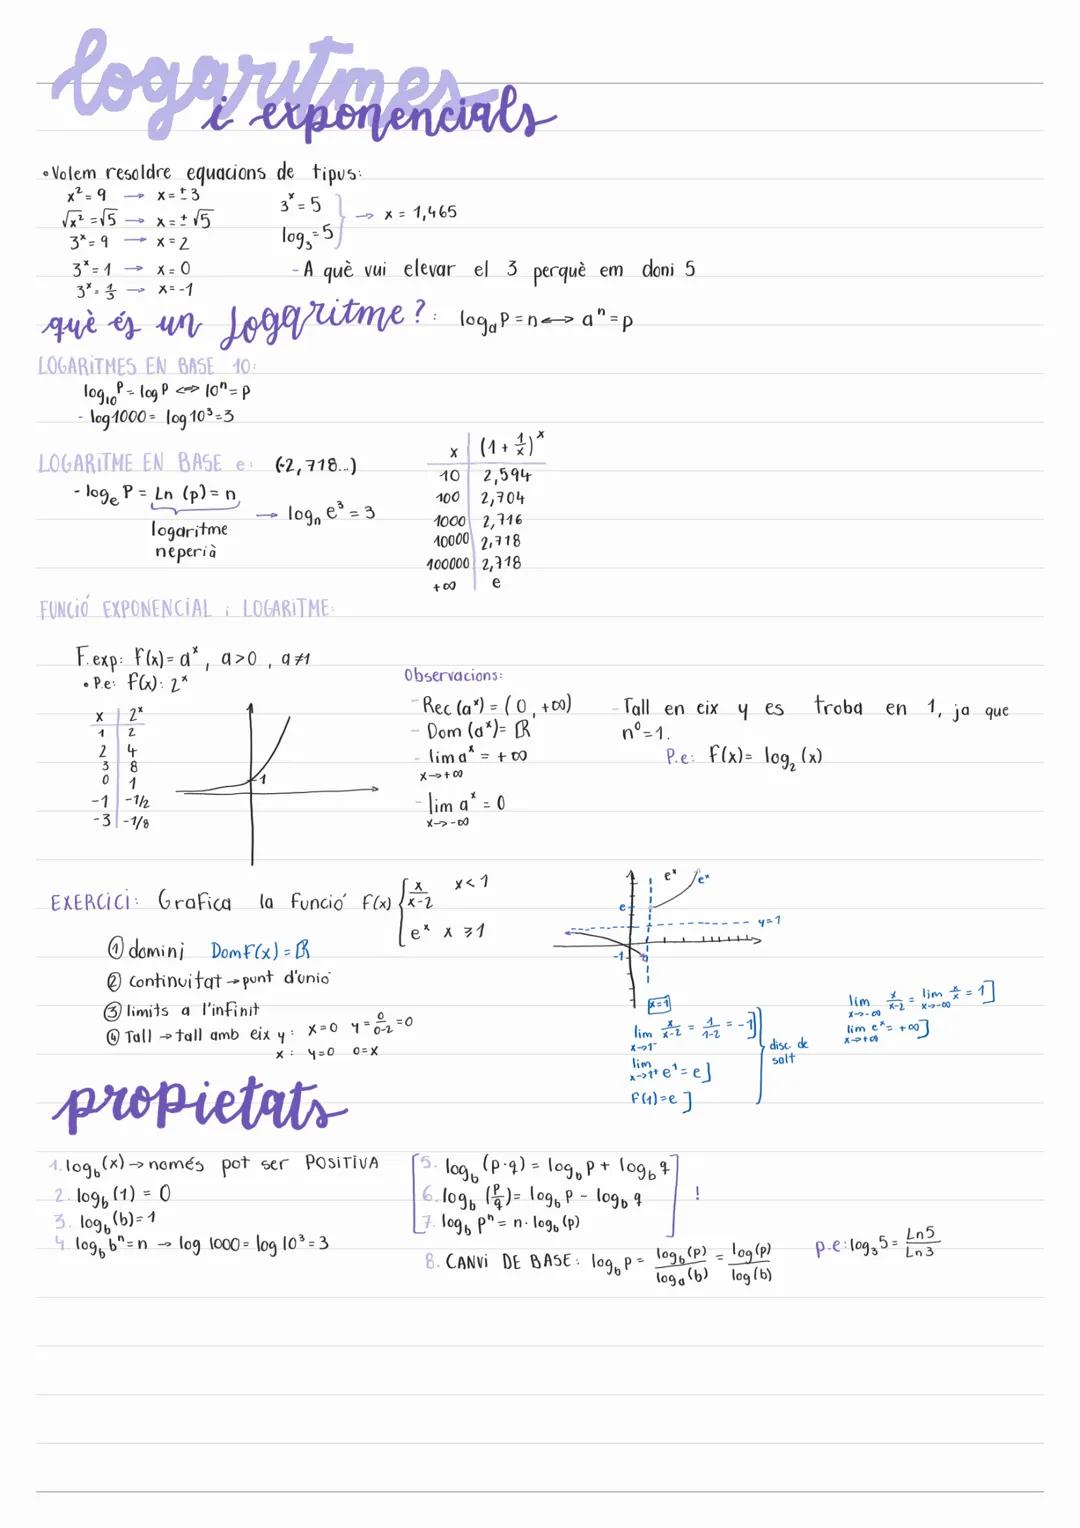 logaritmes
i exponencials
• Volem resoldre equacions de tipus:
x² = 9 → x = ±3
√x² = √5 → x = ±√5
3ˣ = 9 → x = 2
3ˣ = 1 → x = 0
3ˣ = 1/3 → x = -1
3ˣ = 5
log₃ = 5
→ x = 1,465
- A què vui elevar el 3 perquè em doni 5
què és un logaritme?: logₐ P = n ↔ aⁿ = p
LOGARITMES EN BASE 10:
log₁₀ P = log P ⇔ 10ⁿ = p
- log 1000 = log 10³ = 3
LOGARITME EN BASE e: (2,718...)
- logₑ P = Ln (p) = n
logaritme
neperià
→ logₙ e³ = 3
x | (1 + 1/x)ˣ
10 | 2,594
100 | 2,704
1000 | 2,716
10000 | 2,718
100000 | 2,718
+∞ | e
FUNCIÓ EXPONENCIAL i LOGARITME:
F.exp: f(x) = aˣ, a>0, a≠1
• P.e: f(x): 2ˣ
x | 2ˣ
1 | 2
2 | 4
3 | 8
0 | 1
-1 | -1/2
-3 | -1/8
1
Observacions:
- Rec (aˣ) = (0, +∞)
- Dom (aˣ) = ℝ
- lim aˣ = +∞
x→+∞
- lim aˣ = 0
x→-∞
- Tall en eix y es troba en 1, ja que
n⁰ = 1.
P.e: f(x) = log₂ (x)
EXERCICI: Grafica la funció f(x) { x/x-2 x<1
eˣ x ≥ 1
① domini Dom F(x) = ℝ
② continuitat → punt d'unió
③ limits a l'infinit
④ Tall → tall amb eix y: x=0 y = 0/0-2 = 0
x: y=0 0=x
eˣ
eˣ
e
y=1
-1
x=1
lim x/x-2 = 1/1-2 = -1]
x→1⁻
lim
x→1⁺ e¹ = e]
F(1) = e ]
disc. de
salt
lim x/x-2 = lim x/x = 1]
x→-∞ x→-∞
lim eˣ = +∞]
x→+∞
propietats
1. log_b (x) → només pot ser POSITIVA
2. log_b (1) = 0
3. log_b (b) = 1
4. log_b bⁿ = n → log 1000 = log 10³ = 3
5. log_b (p·q) = log_b p + log_b q
6. log_b (p/q) = log_b p - log_b q !
7. log_b pⁿ = n · log_b (p)
8. CANVI DE BASE: log_b P = log_b (p)/logₐ (b) = log (p)/log (b)
p.e: log₃ 5 = Ln 5/Ln 3